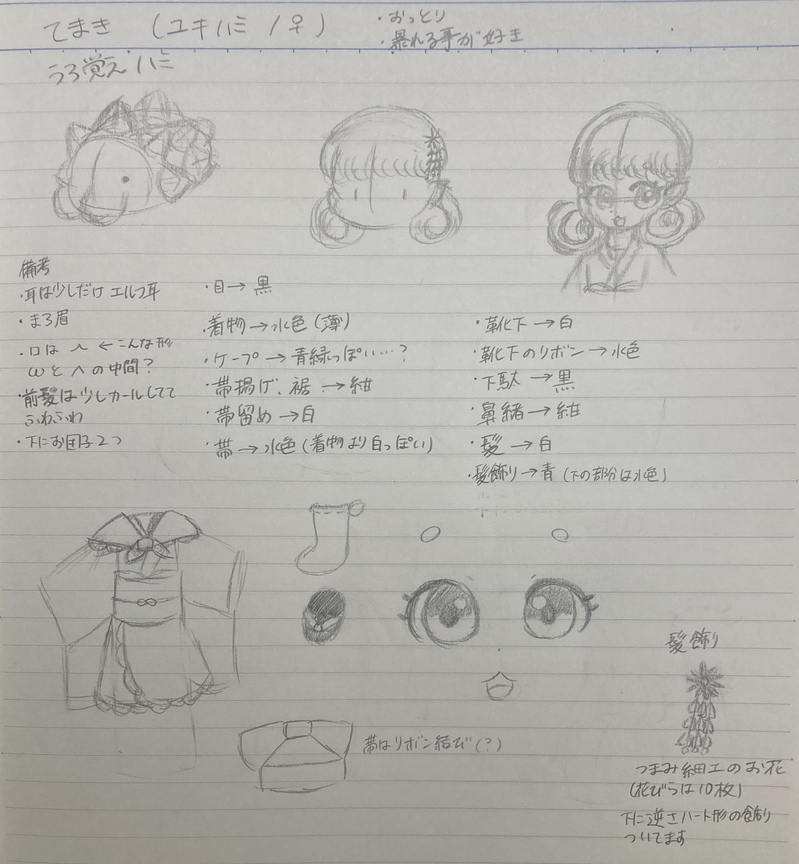 てまき (ユキハミ / ♀)
・おっとり
・暴れる事が好き
うろ覚えハミ
備考
・耳は少しだけエルフ耳
・まろ眉
・口は へ ←こんな形
ωとへの中間?
・前髪は少しカールしてて
ふわふわ
・下にお団子2つ
・目→黒
・着物→水色(薄)
・ケープ→青緑っぽい…?
・帯揚げ、裾→紺
・帯留め→白
・帯→水色(着物より白っぽい)
・靴下→白
・靴下のリボン→水色
・下駄→黒
・鼻緒→紺
・髪→白
・髪飾り→青(下の部分は水色)
帯はリボン結び(?)
髪飾り
つまみ細工のお花
(花びらは10枚)
下に逆さハート形の飾り
ついてます